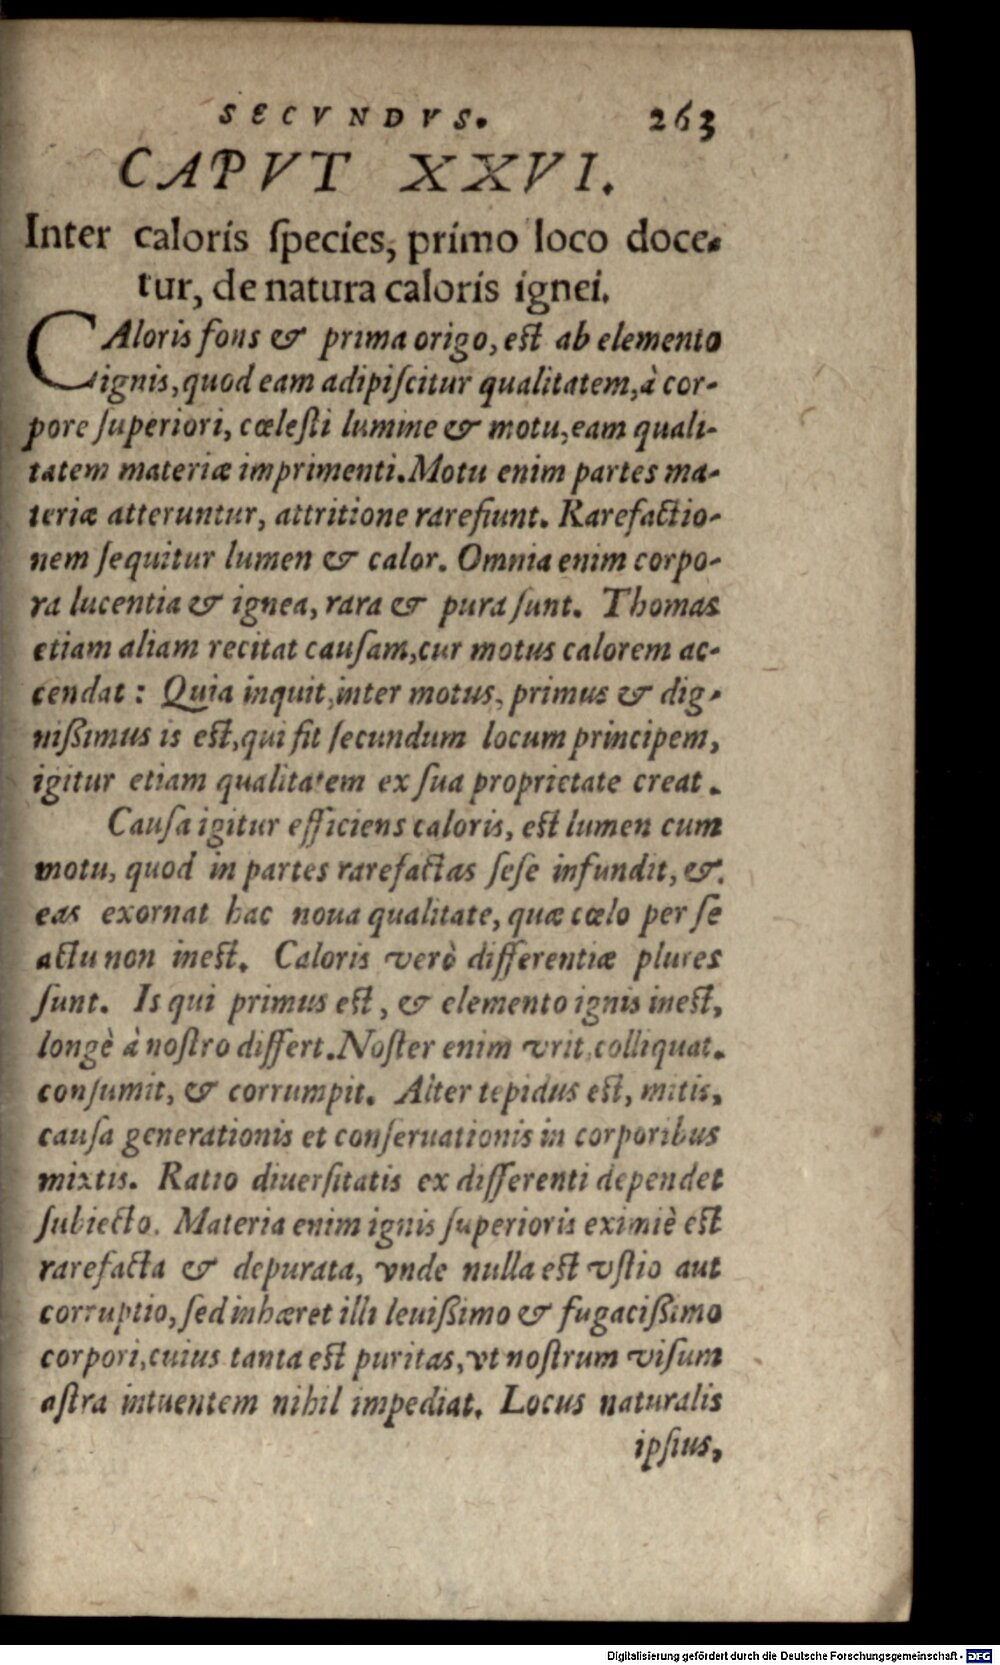 SECVNDVS. 263
CAPVT XXVI.
Inter caloris ſpecies, primo loco doce-
tur, de natura caloris ignei.
CAloris fons & prima origo, est ab elemento
ignis, quod eam adipiſcitur qualitatem, à cor-
pore ſuperiori, cœleſti lumine & motu, eam quali-
tatem materiæ imprimenti. Motu enim partes ma-
teriæ atteruntur, attritione rarefiunt. Rarefactio-
nem ſequitur lumen & calor. Omnia enim corpo-
ra lucentia & ignea, rara & pura ſunt. Thomas
etiam aliam recitat cauſam, cur motus calorem ac-
cendat: Quia inquit, inter motus, primus & dig-
niſſimus is est, qui fit ſecundum locum principem,
igitur etiam qualitatem ex ſua proprietate creat.
Cauſa igitur efficiens caloris, est lumen cum
motu, quod in partes rarefactas ſeſe infundit, &
eas exornat hac noua qualitate, quæ cœlo per ſe
actu non inest. Caloris verò differentiæ plures
ſunt. Is qui primus est, & elemento ignis inest,
longè à noſtro differt. Noſter enim vrit, colliquat.
conſumit, & corrumpit. Alter tepidus est, mitis,
cauſa generationis et conſeruationis in corporibus
mixtis. Ratio diuerſitatis ex differenti dependet
ſubiecto. Materia enim ignis ſuperioris eximiè est
rarefacta & depurata, vnde nulla est vſtio aut
corruptio, ſed inhæret illi leuiſſimo & fugaciſſimo
corpori, cuius tanta est puritas, vt noſtrum viſum
aſtra intuentem nihil impediat. Locus naturalis
ipſius,
Digitalisierung gefördert durch die Deutsche Forschungsgemeinschaft - DFG